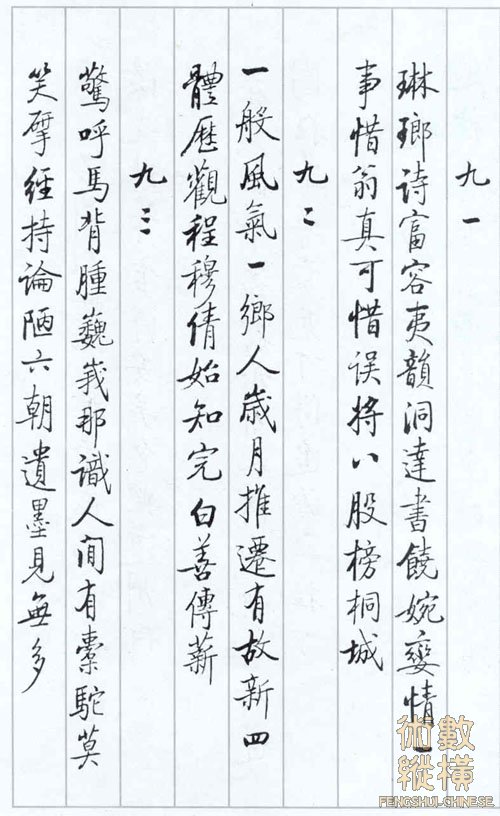 九一
琳瑯詩富容夷韻洞達書饒婉孌情一
事惜翁真可惜误將八股榜桐城
九二
一般風氣一鄉人歲月推遷有故新四
體歷觀程穆倩始知完白善傳薪
九三
驚呼馬背腫巍峩那識人间有橐駝莫
笑擘經持論陋六朝遺墨見無多
術數
縱橫
FENGSHUI-CHINESE.